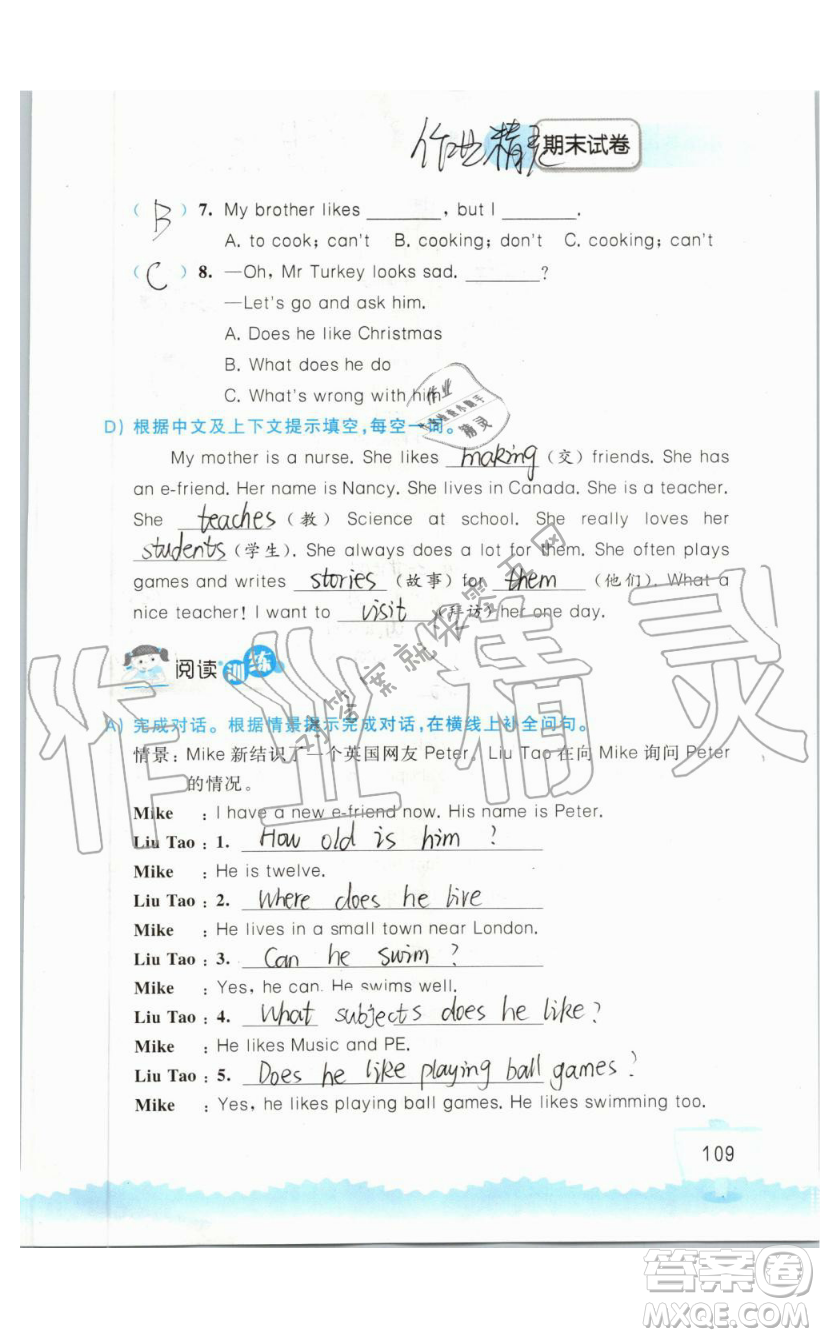 作业精灵 期末试卷
( B ) 7. My brother likes ________, but I ________.
A. to cook; can't B. cooking; don't C. cooking; can't
( C ) 8. —Oh, Mr Turkey looks sad. ________?
—Let's go and ask him.
A. Does he like Christmas
B. What does he do
C. What's wrong with him
D) 根据中文及上下文提示填空,每空一词。
My mother is a nurse. She likes making (交) friends. She has
an e-friend. Her name is Nancy. She lives in Canada. She is a teacher.
She teaches (教) Science at school. She really loves her
students (学生). She always does a lot for them. She often plays
games and writes stories (故事) for them (他们). What a
nice teacher! I want to visit (拜访) her one day.
阅读训练
A) 完成对话。根据情景提示完成对话,在横线上补全问句。
情景:Mike 新结识了一个英国网友 Peter, Liu Tao 在向 Mike 询问 Peter
的情况。
Mike : I have a new e-friend now. His name is Peter.
Liu Tao : 1. How old is him ?
Mike : He is twelve.
Liu Tao : 2. Where does he live
Mike : He lives in a small town near London.
Liu Tao : 3. Can he swim ?
Mike : Yes, he can. He swims well.
Liu Tao : 4. What subjects does he like?
Mike : He likes Music and PE.
Liu Tao : 5. Does he like playing ball games?
Mike : Yes, he likes playing ball games. He likes swimming too.
109
作业精灵
答案卷
MXQE.COM